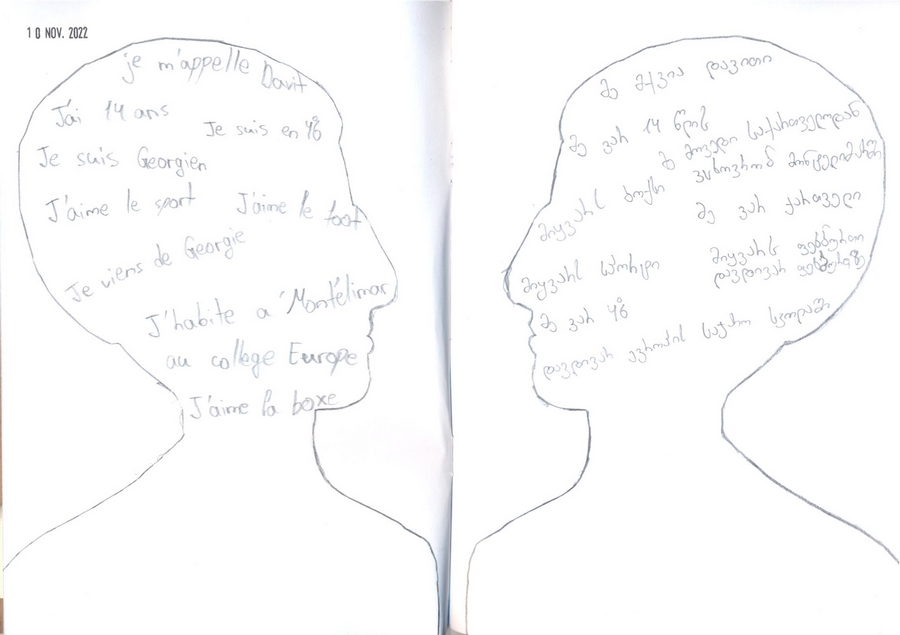 10 NOV. 2022
je m'appelle Davit
J'ai 14 ans
Je suis en 4è
Je suis Georgien
J'aime le sport J'aime le foot
Je viens de Georgie
J'habite a Montélimar
au collège Europe
J'aime la boxe
მე მქვია დავითი
მე ვარ 14 წლის
მე მოვედი საქართველოდან
ვცხოვრობ მონტელიმარში
მიყვარს ბოქსი
მე ვარ ქართველი
მიყვარს სპორტი
მიყვარს ფეხბურთი
დავდივარ
მე ვარ 4è
დავდივარ ევროპის საჯარო სკოლაში